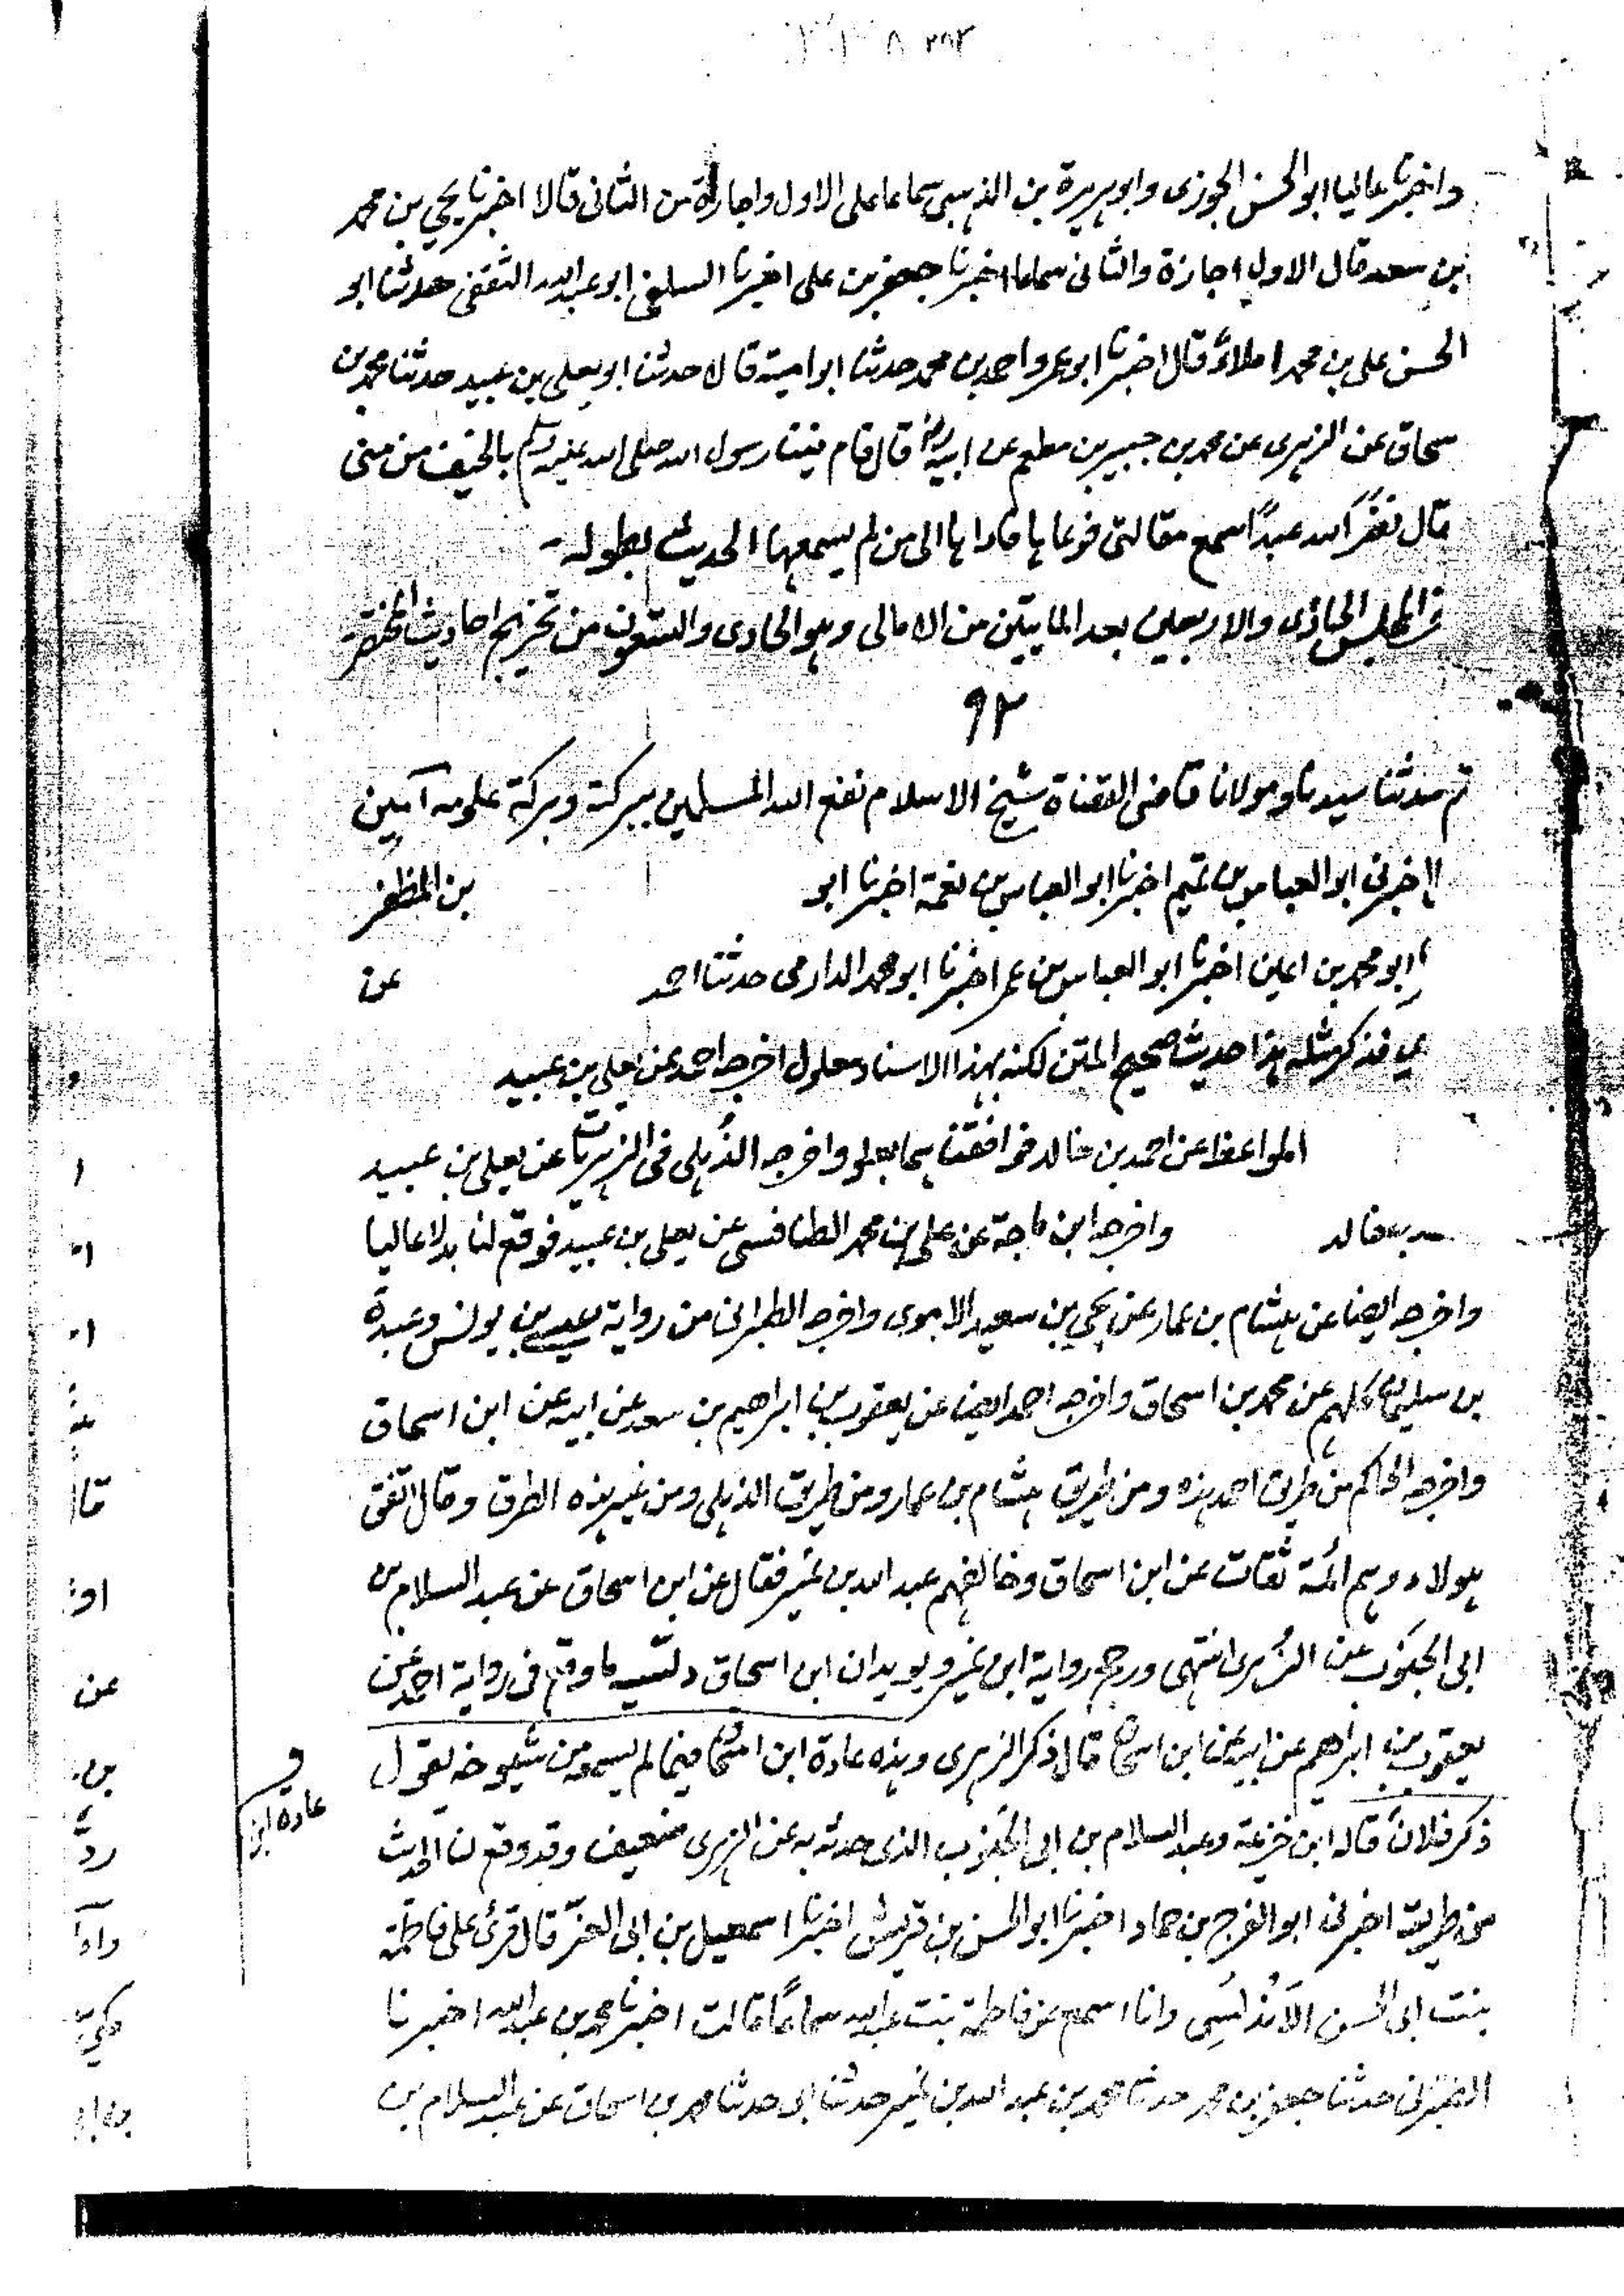 واخبرنا عاليا ابو الحسن الجوزى وابو هريرة بن الذهبى سماعا على الاول واجازة من الثانى قالا اخبرنا يحيى بن محمد
بن سعد قال الاول اجازة والثانى سماعا اخبرنا جعفر بن على اخبرنا السلفى ابو عبد الله الثقفى حدثنا ابو
الحسن على بن محمد املاءً قال اخبرنا ابو عمرو احمد بن محمد حدثنا ابو امية قال حدثنا ابو يعلى بن عبيد حدثنا محمد بن
سحاق عن الزهرى عن محمد بن جبير بن مطعم عن ابيه رض قال قام فينا رسول الله صلى الله عليه وسلم بالخيف من منى
فقال نضّر الله عبدًا سمع مقالتى فوعاها فاداها الى من لم يسمعها الحديث بطوله
المجلس الحادى والاربعين بعد المايتين من الامالى وهو الحادى والتسعون من تخريج احاديث المختصر
٩٢
ثم حدثنا سيدنا ومولانا قاضى القضاة شيخ الاسلام نفع الله المسلمين ببركته وبركة علومه آمين
اخبرنى ابو العباس بن تميم اخبرنا ابو العباس بن نعمة اخبرنا ابو بن المظفر
ابو محمد بن اعين اخبرنا ابو العباس بن عمر اخبرنا ابو محمد الدارمى حدثنا احمد عن
فذكر مثله هذا حديث صحيح المتن لكنه بهذا الاسناد معلول اخرجه احمد عن يعلى بن عبيد
المواعظ عن احمد بن خالد فوافقناهما بعلو واخرجه الذُهلى فى الزهريات عن يعلى بن عبيد
خالد واخرجه ابن ماجة عن على بن محمد الطنافسى عن يعلى بن عبيد فوقع لنا بدلا عاليا
واخرجه ايضا عن هشام بن عمار عن يحيى بن سعيد الاموى واخرجه الطبرانى من رواية عيسى بن يونس وعبدة
بن سليمان كلهم عن محمد بن اسحاق واخرجه احمد ايضا عن يعقوب بن ابراهيم بن سعد عن ابيه عن ابن اسحاق
واخرجه الحاكم من طريق احمد هذه ومن طريق هشام بن عمار ومن طريق الذهلى ومن غير هذه الطرق وقال اتفق
هولاء وهم ائمة ثقات عن ابن اسحاق وخالفهم عبد الله بن نمير فقال عن ابن اسحاق عن عبد السلام بن
ابى الجنوب عن الزهرى انتهى ورجح رواية ابن نمير ويويد ان ابن اسحاق دلسه ما وقع فى رواية احمد عن
يعقوب بن ابراهيم عن ابيه عن ابن اسحاق قال ذكر الزهرى وهذه عادة ابن اسحاق فيما لم يسمعه من شيوخه يقول
ذكر فلانٌ قاله ابن خزيمة وعبد السلام بن ابى الجنوب الذى حدثه به عن الزهرى ضعيف وقد وقع لنا الحديث
من طريقه اخبرنى ابو الفرج بن حماد اخبرنا ابو الحسن بن قريش اخبرنا اسمعيل بن ابى العزّ قال قرئ على فاطمة
بنت ابى الحسن الاَندُلُسِى وانا اسمع عن فاطمة بنت عبد الله سماعًا قالت اخبرنا محمد بن عبد الله اخبرنا
الطبرانى حدثنا جعفر بن محمد حدثنا محمد بن عبد الله بن نمير حدثنا ابى حدثنا محمد بن اسحاق عن عبد السلام بن
عادة ابن
قا
او
عن
بن